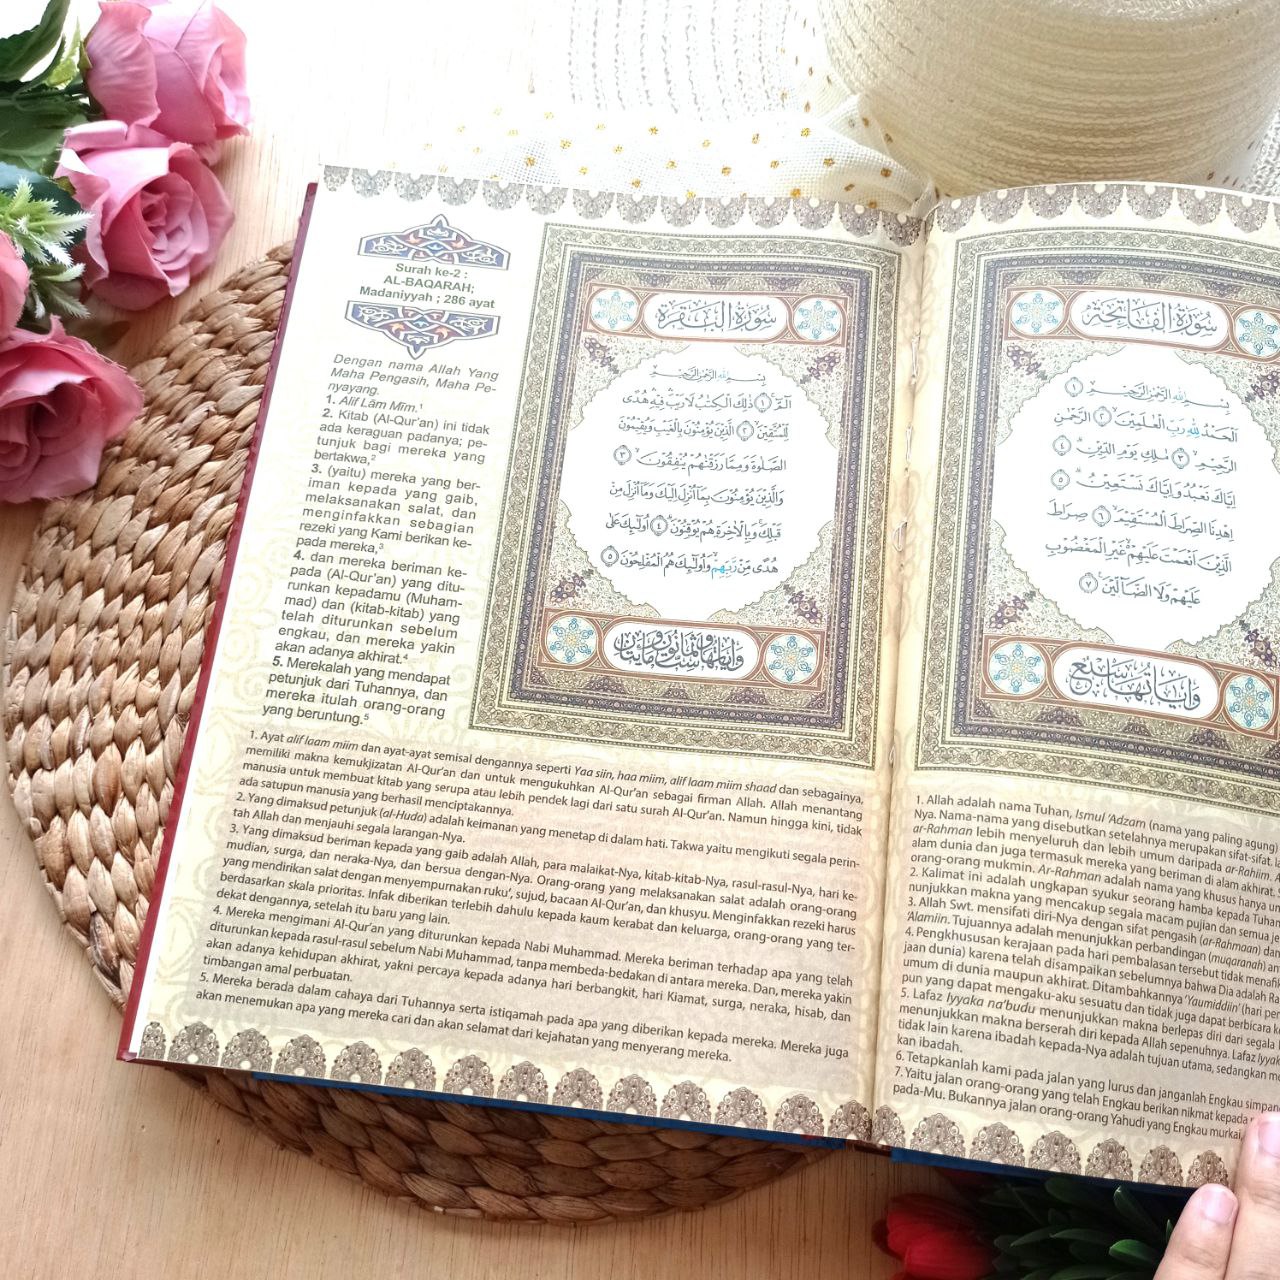 Surah ke-2 :
AL-BAQARAH;
Madaniyyah ; 286 ayat
Dengan nama Allah Yang
Maha Pengasih, Maha Pe-
nyayang.
1. Alif Lâm Mîm.¹
2. Kitab (Al-Qur'an) ini tidak
ada keraguan padanya; pe-
tunjuk bagi mereka yang
bertakwa,²
3. (yaitu) mereka yang ber-
iman kepada yang gaib,
melaksanakan salat, dan
menginfakkan sebagian
rezeki yang Kami berikan ke-
pada mereka,³
4. dan mereka beriman ke-
pada (Al-Qur'an) yang ditu-
runkan kepadamu (Muham-
mad) dan (kitab-kitab) yang
telah diturunkan sebelum
engkau, dan mereka yakin
akan adanya akhirat.⁴
5. Merekalah yang mendapat
petunjuk dari Tuhannya, dan
mereka itulah orang-orang
yang beruntung.⁵
سُورَةُ الْبَقَرَةِ
بِسْمِ اللهِ الرَّحْمٰنِ الرَّحِيْمِ
الۤمّۤ ۚ ١ ذٰلِكَ الْكِتٰبُ لَا رَيْبَ ۛ فِيْهِ ۛ هُدًى
لِّلْمُتَّقِيْنَ ۙ ٢ الَّذِيْنَ يُؤْمِنُوْنَ بِالْغَيْبِ وَيُقِيْمُوْنَ
الصَّلٰوةَ وَمِمَّا رَزَقْنٰهُمْ يُنْفِقُوْنَ ۙ ٣
وَالَّذِيْنَ يُؤْمِنُوْنَ بِمَآ اُنْزِلَ اِلَيْكَ وَمَآ اُنْزِلَ مِنْ
قَبْلِكَ ۚ وَبِالْاٰخِرَةِ هُمْ يُوْقِنُوْنَ ۗ ٤ اُولٰۤىِٕكَ عَلٰى
هُدًى مِّنْ رَّبِّهِمْ ۙ وَاُولٰۤىِٕكَ هُمُ الْمُفْلِحُوْنَ ٥
1. Ayat alif laam miim dan ayat-ayat semisal dengannya seperti Yaa siin, haa miim, alif laam miim shaad dan sebagainya,
memiliki makna kemukjizatan Al-Qur'an dan untuk mengukuhkan Al-Qur'an sebagai firman Allah. Allah menantang
manusia untuk membuat kitab yang serupa atau lebih pendek lagi dari satu surah Al-Qur'an. Namun hingga kini, tidak
ada satupun manusia yang berhasil menciptakannya.
2. Yang dimaksud petunjuk (al-Huda) adalah keimanan yang menetap di dalam hati. Takwa yaitu mengikuti segala perin-
tah Allah dan menjauhi segala larangan-Nya.
3. Yang dimaksud beriman kepada yang gaib adalah Allah, para malaikat-Nya, kitab-kitab-Nya, rasul-rasul-Nya, hari ke-
mudian, surga, dan neraka-Nya, dan bersua dengan-Nya. Orang-orang yang melaksanakan salat adalah orang-orang
yang mendirikan salat dengan menyempurnakan ruku', sujud, bacaan Al-Qur'an, dan khusyu. Menginfakkan rezeki harus
berdasarkan skala prioritas. Infak diberikan terlebih dahulu kepada kaum kerabat dan keluarga, orang-orang yang ter-
dekat dengannya, setelah itu baru yang lain.
4. Mereka mengimani Al-Qur'an yang diturunkan kepada Nabi Muhammad. Mereka beriman terhadap apa yang telah
diturunkan kepada rasul-rasul sebelum Nabi Muhammad, tanpa membeda-bedakan di antara mereka. Dan, mereka yakin
akan adanya kehidupan akhirat, yakni percaya kepada adanya hari berbangkit, hari Kiamat, surga, neraka, hisab, dan
timbangan amal perbuatan.
5. Mereka berada dalam cahaya dari Tuhannya serta istiqamah pada apa yang diberikan kepada mereka. Mereka juga
akan menemukan apa yang mereka cari dan akan selamat dari kejahatan yang menyerang mereka.
سُورَةُ الْفَاتِحَةِ
بِسْمِ اللهِ الرَّحْمٰنِ الرَّحِيْمِ ١
اَلْحَمْدُ لِلّٰهِ رَبِّ الْعٰلَمِيْنَ ۙ ٢ الرَّحْمٰنِ
الرَّحِيْمِ ۙ ٣ مٰلِكِ يَوْمِ الدِّيْنِ ۗ ٤
اِيَّاكَ نَعْبُدُ وَاِيَّاكَ نَسْتَعِيْنُ ۗ ٥
اِهْدِنَا الصِّرَاطَ الْمُسْتَقِيْمَ ۙ ٦ صِرَاطَ
الَّذِيْنَ اَنْعَمْتَ عَلَيْهِمْ ەۙ غَيْرِ الْمَغْضُوْبِ
عَلَيْهِمْ وَلَا الضَّاۤلِّيْنَ ٧
وآياتها سبع
1. Allah adalah nama Tuhan, Ismul 'Adzam (nama yang paling agung)
Nya. Nama-nama yang disebutkan setelahnya merupakan sifat-sifat.
ar-Rahman lebih menyeluruh dan lebih umum daripada ar-Rahiim.
alam dunia dan juga termasuk mereka yang beriman di alam akhirat.
orang-orang mukmin. Ar-Rahman adalah nama yang khusus hanya
2. Kalimat ini adalah ungkapan syukur seorang hamba kepada
nunjukkan makna yang mencakup segala macam pujian dan semua
3. Allah Swt. mensifati diri-Nya dengan sifat pengasih (ar-Rahmaan) dan
'Alamiin. Tujuannya adalah menunjukkan perbandingan (muqaranah)
4. Pengkhususan kerajaan pada hari pembalasan tersebut tidak
jaan dunia) karena telah disampaikan sebelumnya bahwa Dia adalah
umum di dunia maupun akhirat. Ditambahkannya 'Yaumiddiin' (hari
pun yang dapat mengaku-aku sesuatu dan tidak juga dapat berbicara
5. Lafaz Iyyaka na'budu menunjukkan makna berlepas diri dari segala
menunjukkan makna berserah diri kepada Allah sepenuhnya. Lafaz
tidak lain karena ibadah kepada-Nya adalah tujuan utama, sedangkan
kan ibadah.
6. Tetapkanlah kami pada jalan yang lurus dan janganlah Engkau
7. Yaitu jalan orang-orang yang telah Engkau berikan nikmat kepada
pada-Mu. Bukannya jalan orang-orang Yahudi yang Engkau murkai,